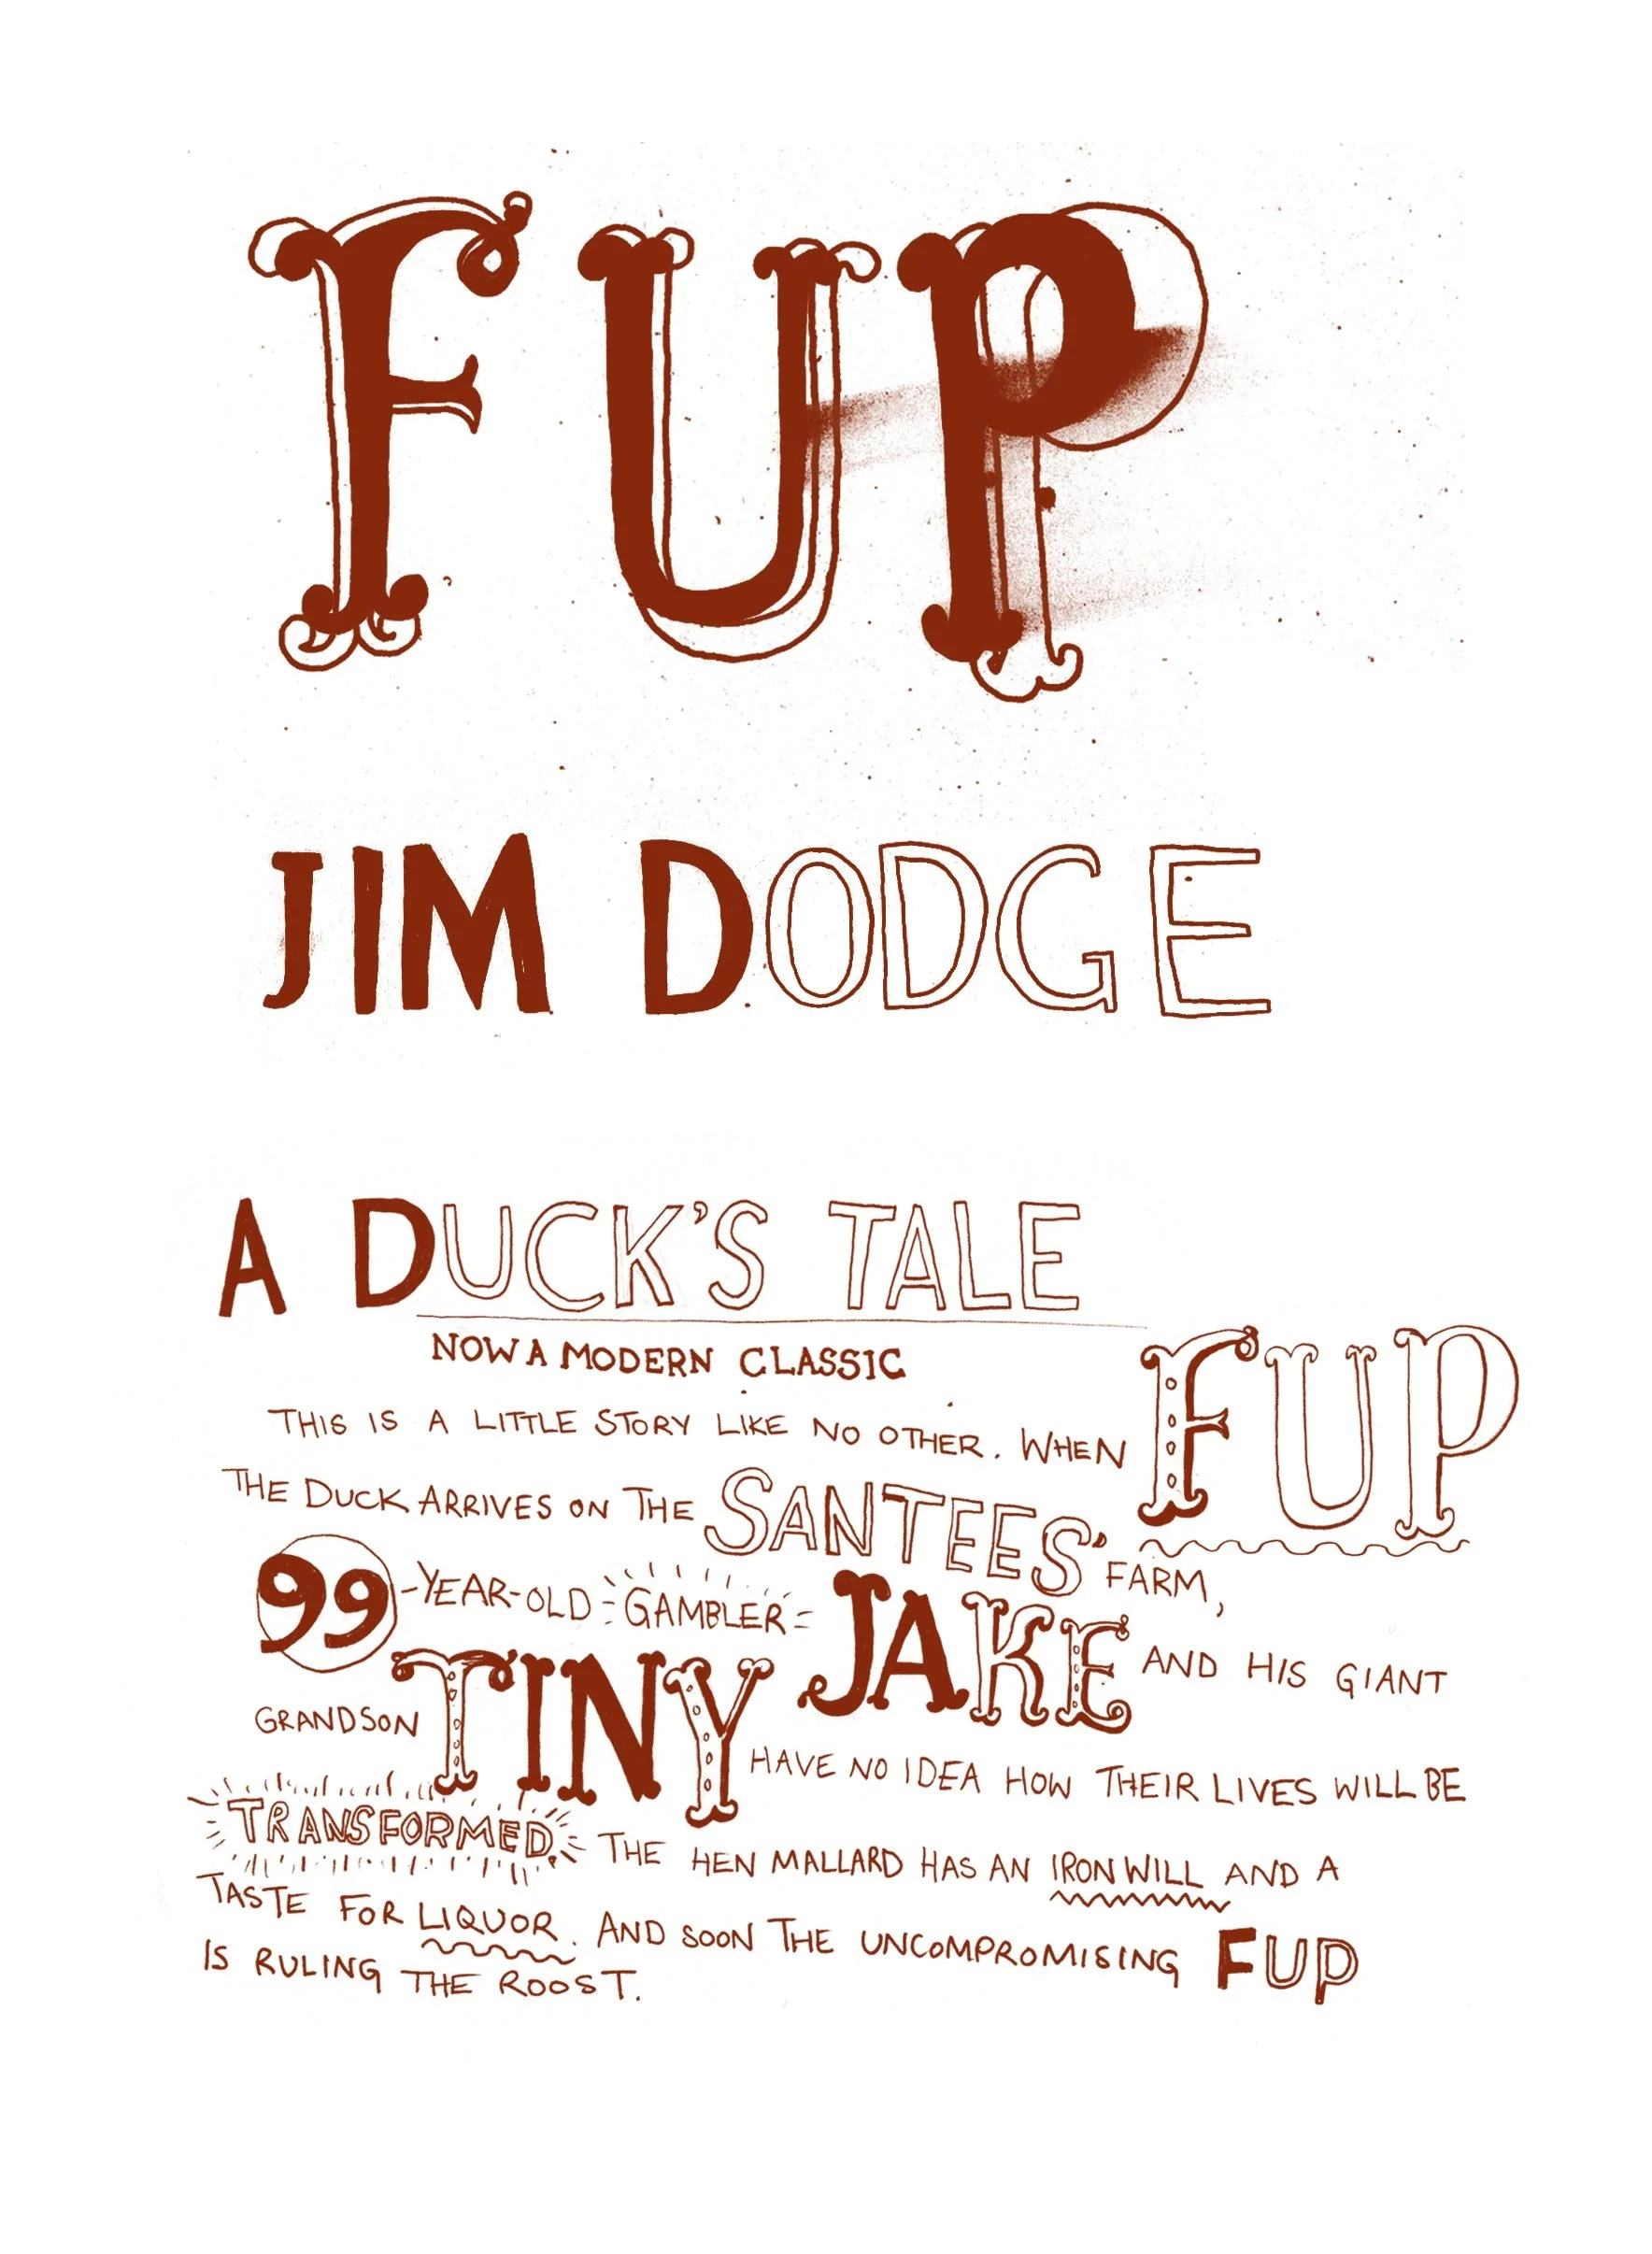 FUP
JIM DODGE
A DUCK'S TALE
NOW A MODERN CLASSIC
THIS IS A LITTLE STORY LIKE NO OTHER. WHEN FUP
THE DUCK ARRIVES ON THE SANTEES' FARM,
99-YEAR-OLD GAMBLER JAKE AND HIS GIANT
GRANDSON TINY HAVE NO IDEA HOW THEIR LIVES WILL BE
TRANSFORMED. THE HEN MALLARD HAS AN IRON WILL AND A
TASTE FOR LIQUOR. AND SOON THE UNCOMPROMISING FUP
IS RULING THE ROOST.